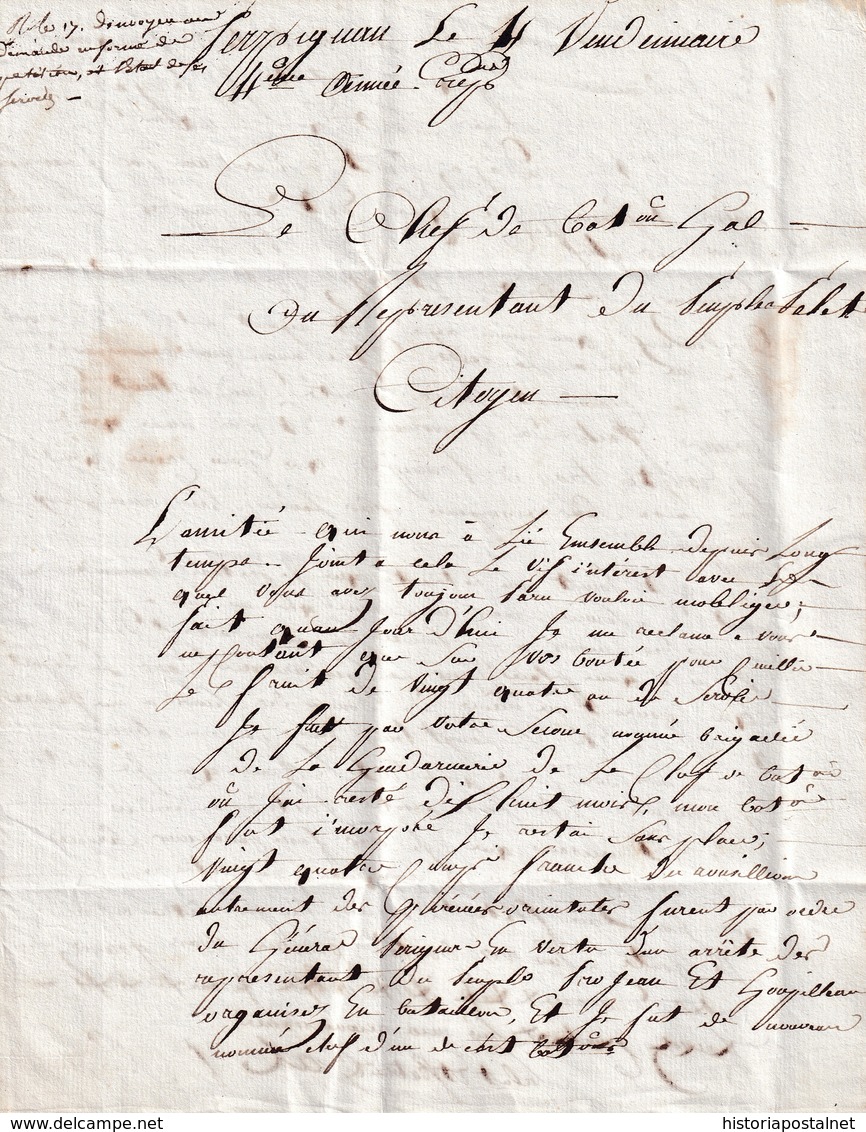 Rble 17. d'envoyer une
demande en forme de
pétition, et l'état de ses
services —
Perpignan Le 4 Vendemiaire
4eme Année Repu
Le Chef de Batон Gal
Au Représentant du Peuple
Citoyen
L'amitée qui nous à Lié Ensemble depuis Long
temps. Joint a cela Le vif intérest avec
quel vous avez toujour Paru vouloir mobliger;
fait quau Jour d'hui Je ne reclame a vous
ne Contant que sur vos bontée pour
Le fruit de vingt quatre an de Service
Je fut par votre Secour nommé brigadié
de La Gendarmerie de Le Chef de bat on
où J'ai resté dis huit mois, mon bat on
fut incorporé Je restai sans place;
Vingt quatre Comp franche du roussillion
autrement des Pirénées orientales furent par ordre
du Général Perignon En vertu d'un arrête des
représentant du Peuple Projean Et Goupilleau
organisés En bataillon, Et Je fut de nouveau
nommé chef d'un de cest bat ons
delcampe.net
historiapostalnet